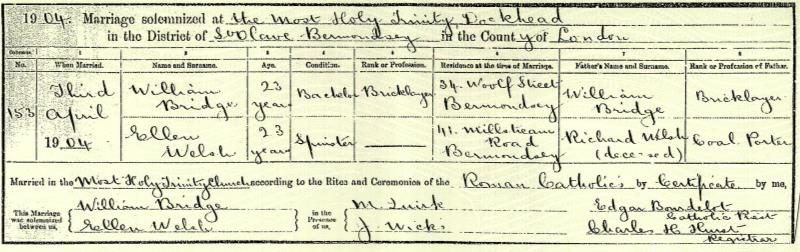 1904. Marriage solemnized at the Most Holy Trinity, Dockhead
in the District of St Olave Bermondsey in the County of London
Columns:— 1 2 3 4 5 6 7 8
No. When Married. Name and Surname. Age. Condition. Rank or Profession. Residence at the time of Marriage. Father's Name and Surname. Rank or Profession of Father.
153 Third April 1904 William Bridge 23 years Bachelor Bricklayer 34. Woolf Street Bermondsey William Bridge Bricklayer
Ellen Welsh 23 years Spinster —— 41. Millstream Road Bermondsey Richard Welsh (deceased) Coal Porter
Married in the Most Holy Trinity Church according to the Rites and Ceremonies of the Roman Catholics by Certificate by me,
This Marriage was solemnized between us, William Bridge Ellen Welsh in the Presence of us, M. Quirk J. Wicks Edgar Catholic Priest
Charles H. Hurst Registrar